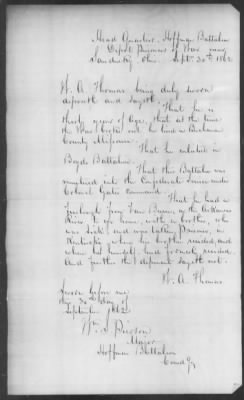 Head Quarters, Hoffman Battalion
Depot Prisoners of War near
Sandusky Ohio. Sept. 30th 1862
W. A. Thomas being duly sworn
deposeth and sayeth: That he is
thirty years of age, that at the time
the War broke out he lived in Buchanan
County Missouri.
That he enlisted in
Boyds Battalion.
That this Battalion was
mustered into the Confederate service under
Colonel Gates command.
That he had a
furlough from Van Buren, on the Arkansas
River to go home, with a brother, who
was sick and was taken Prisoner, in
Kentucky where his brother resided, and
where he himself had formerly resided.
And further this deponent sayeth not.
W. A. Thomas.
Sworn before me
this 30th day of
September 1862
Wm. S. Pierson
Major
Hoffman Battalion
Comd'g